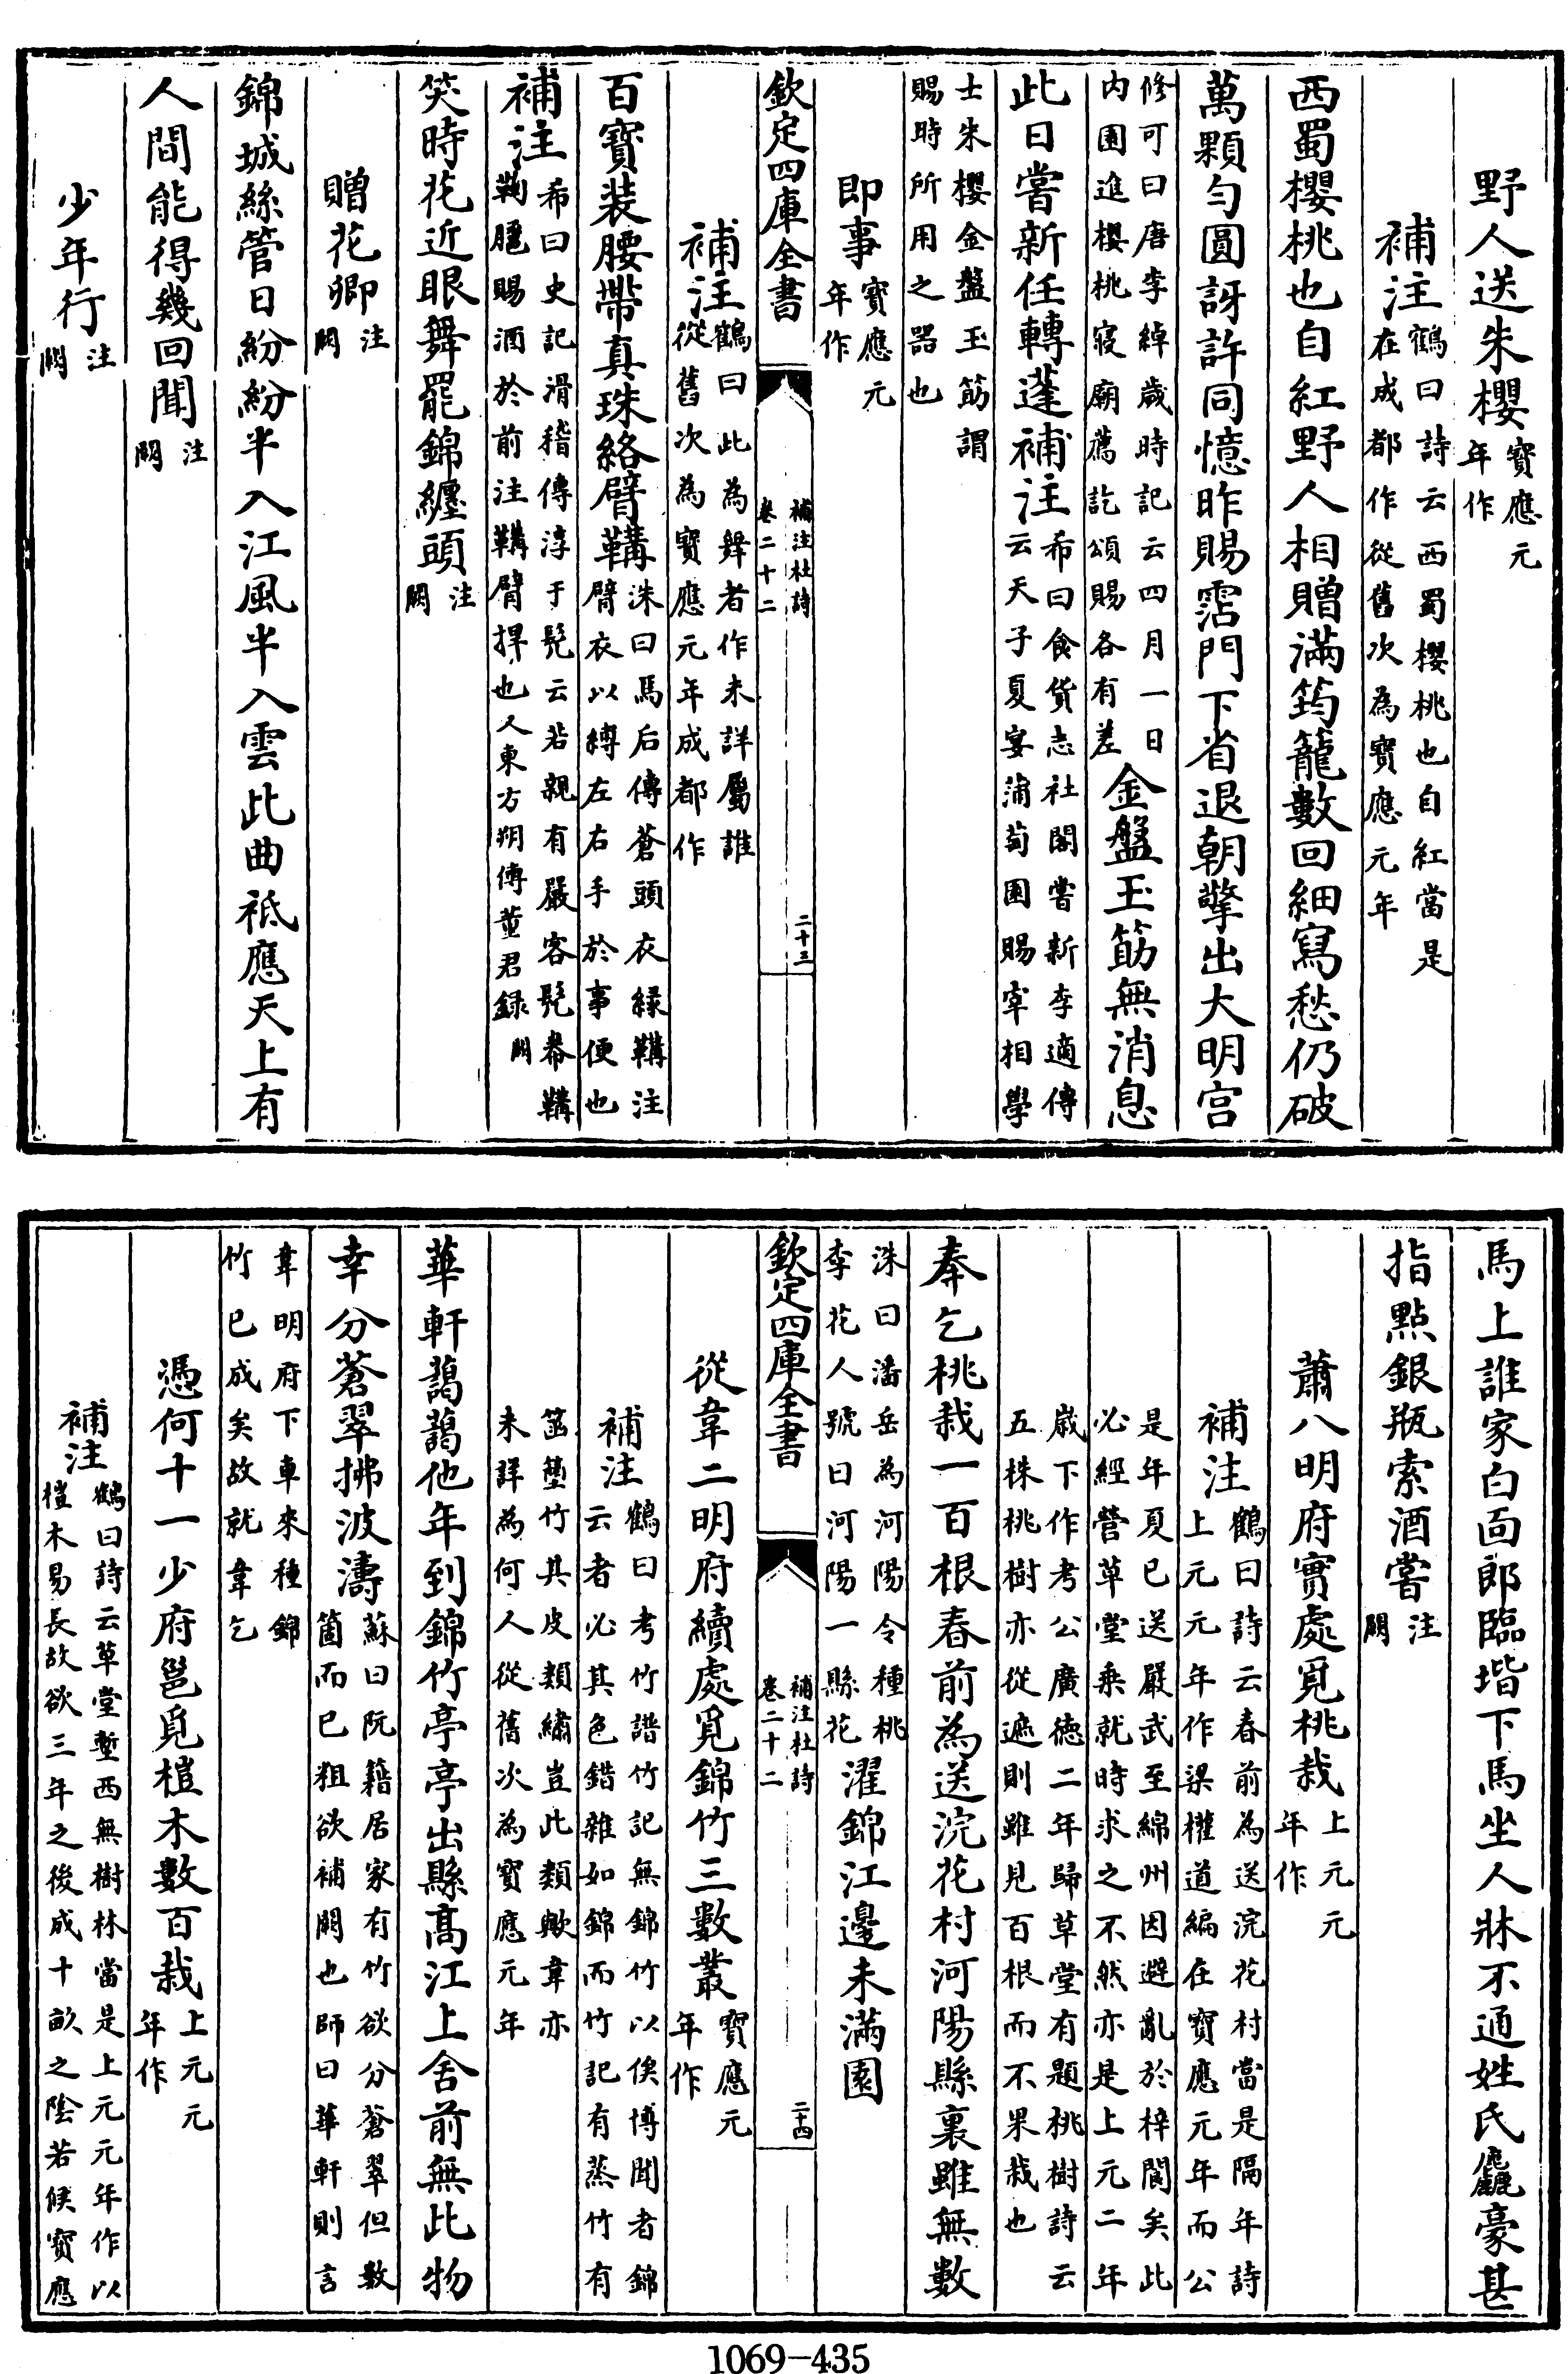 野人送朱櫻寶應元年作
補注鶴曰詩云西蜀櫻桃也自紅當是在成都作從舊次為寶應元年
西蜀櫻桃也自紅野人相贈滿筠籠數回細寫愁仍破
萬顆勻圓訝許同憶昨賜霑門下省退朝擎出大明宮
修可曰唐李綽歲時記云四月一日內園進櫻桃寢廟薦訖頒賜各有差金盤玉筯無消息
此日嘗新任轉蓬補注希曰食貨志社閣嘗新李適傳云天子夏宴蒲萄園賜宰相學
士朱櫻金盤玉筯謂賜時所用之器也
即事寶應元年作
欽定四庫全書 補注杜詩卷二十二 二十三
補注鶴曰此為舞者作未詳屬誰從舊次為寶應元年成都作
百寶裝腰帶真珠絡臂鞲洙曰馬后傳蒼頭衣緑鞲注臂衣以縛左右手於事便也
補注希曰史記滑稽傳淳于髠云若親有嚴客髠帣鞲鞠䠆賜酒於前注鞲臂捍也人東方朔傳董君録闕
笑時花近眼舞罷錦纏頭注闕
贈花卿注闕
錦城絲管日紛紛半入江風半入雲此曲祗應天上有
人間能得幾回聞注闕
少年行注闕
馬上誰家白面郎臨堦下馬坐人牀不通姓氏麤豪甚
指點銀瓶索酒嘗注闕
蕭八明府實處覓桃栽上元元年作
補注鶴曰詩云春前為送浣花村當是隔年詩上元元年作梁權道編在寶應元年而公
是年夏已送嚴武至綿州因避亂於梓閬矣此必經營草堂乘就時求之不然亦是上元二年
歲下作考公廣德二年歸草堂有題桃樹詩云五株桃樹亦從遮則雖見百根而不果栽也
奉乞桃栽一百根春前為送浣花村河陽縣裏雖無數
洙曰潘岳為河陽令種桃李花人號曰河陽一縣花濯錦江邊未滿園
欽定四庫全書 補注杜詩卷二十二 二十四
從韋二明府續處覓錦竹三數叢寶應元年作
補注鶴曰考竹譜竹記無錦竹以俟博聞者錦云者必其色錯雜如錦而竹記有蒸竹有
箛䉛竹其皮類繡豈此類歟韋亦未詳為何人從舊次為寶應元年
華軒藹藹他年到錦竹亭亭出縣高江上舍前無此物
幸分蒼翠拂波濤蘇曰阮籍居家有竹欲分蒼翠但數箇而已粗欲補闕也師曰華軒則言
韋明府下車來種錦竹已成矣故就韋乞
憑何十一少府邕覓榿木數百栽上元元年作
補注鶴曰詩云草堂塹西無樹林當是上元元年作以榿木易長故欲三年之後成十畝之陰若候寶應
1069-435